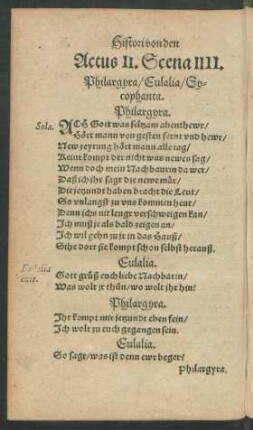 Histori von den
Actus II. Scena IIII.
Philargyra / Eulalia / Sy-
cophanta.
Philargyra.
Sola. ACh Gott was seltzam abenthewr /
Hört mann von gesten fernt vnd hewr /
New zeytung hört mann alle tag /
Keinr kompt der nicht was newes sag /
Wenn doch mein Nachbaurin da wer /
Daß ich ihr sagt die newe mär /
Die jetzundt haben bracht die Leut /
So vnlangst zu vns kommen heut /
Denn ichs nit lengr verschweigen kan /
Ich muß je als bald zeigen an /
Ich wil gehn zu jr in das Hauß /
Sihe dort sie kompt schon selbst herauß.
Eulalia
exit.
Eulalia.
Gott grüß euch liebe Nachbarin /
Was wolt jr thůn / wo wolt jhr hin?
Philargyra.
Ihr kompt mir jetzundt eben fein /
Ich wolt zu euch gegangen sein.
Eulalia.
So sagt / was ist denn ewr beger?
Philargyra.